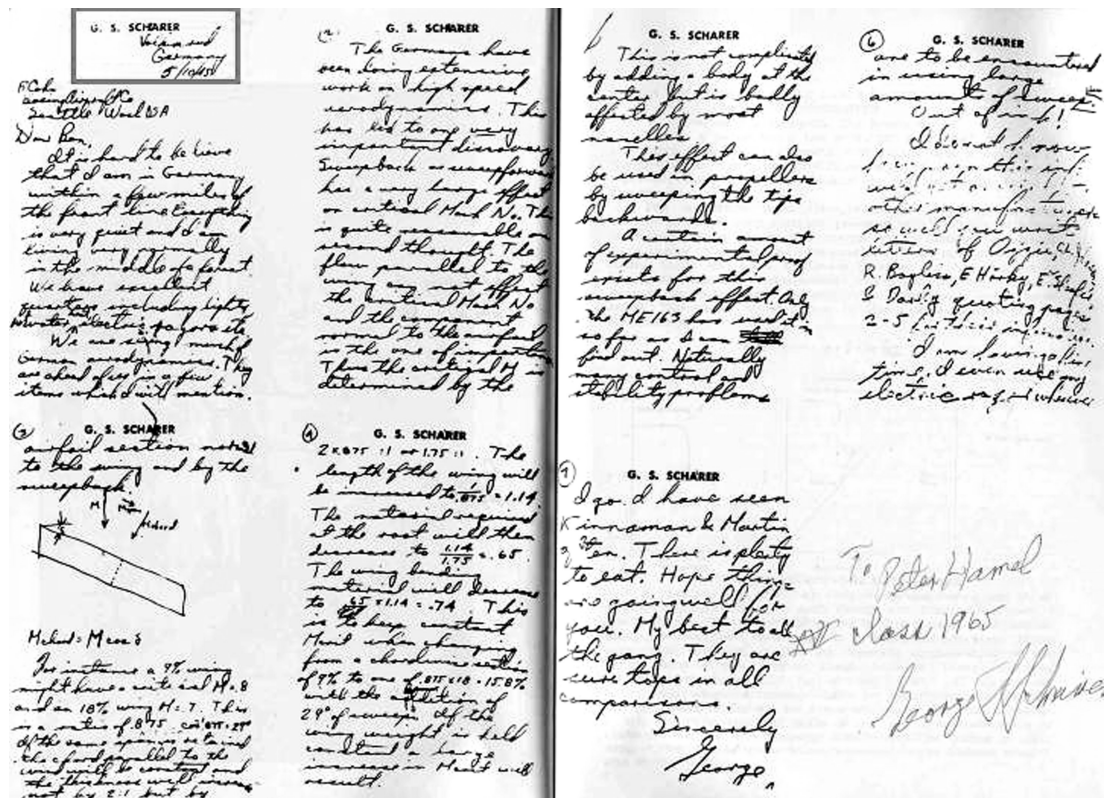 G. S. SCHARER
Germany
5/10/45
Seattle Wash USA
Dear Ben,
It is hard to believe
that I am in Germany
within a few miles of
the front line. Everything
is very quiet and I am
living very normally
in the middle of a forest.
We have excellent
quarters including lights,
water, electric razors etc.
We are seeing much of
German aerodynamics. They
are ahead of us in a few
items which I will mention.
G. S. SCHARER
The Germans have
been doing extensive
work on high speed
aerodynamics. This
has led to one very
important discovery.
Sweepback or sweepforward
has a very large effect
on critical Mach No. This
is quite reasonable on
second thought. The
flow parallel to the
wing can not affect
the critical Mach No
and the component
normal to the airfoil
is the one of importance.
Thus the critical M is
determined by the
3
G. S. SCHARER
airfoil section normal
to the wing and by the
sweepback.
M
For instance a 9% wing
might have a critical M=.8
and an 18% wing M=.7. This
is a ratio of .875. cos⁻¹ .875=29°
If the same span is retained
the chord parallel to the
wind will be constant and
the thickness will increase
not by 2:1 but by
4
G. S. SCHARER
2x.875:1 or 1.75:1. The
length of the wing will
be increased to 1/.875 = 1.14
The material required
at the root will then
decrease to 1.14/1.75 = .65.
The wing bending
material will decrease
to .65x1.14=.74. This
is to keep constant
Mcrit when changing
from a chordwise section
of 9% to one of .875x18=15.8%
with the addition of
29° of sweep. If the
wing weight is held
constant a large
increase in Mcrit will
result.
G. S. SCHARER
This is not complicated
by adding a body at the
center but is badly
affected by most
nacelles.
This effect can also
be used in propellers
by sweeping the tips
backwards.
A certain amount
of experimental proof
exists for this
sweepback effect. Only
the ME163 has used it
so far as I can
find out. Naturally
many control and
stability problems
6
G. S. SCHARER
are to be encountered
in using large
amounts of sweep.
Out of ink!
I do not know
how soon this info
will get around to
other manufacturers
so will you write
letters to Ozzie,
R. Bayless, E Horky,
& Davis quoting pages
2-5 for their information.
I am having a fine
time. I even use my
electric razor wherever
7
G. S. SCHARER
I go. I have seen
Kinnaman & Martin
often. There is plenty
to eat. Hope things
are going well for
you. My best to all
the gang. They are
sure tops in all
comparisons.
Sincerely
George
To Peter Hamel
class 1965
George S Schairer